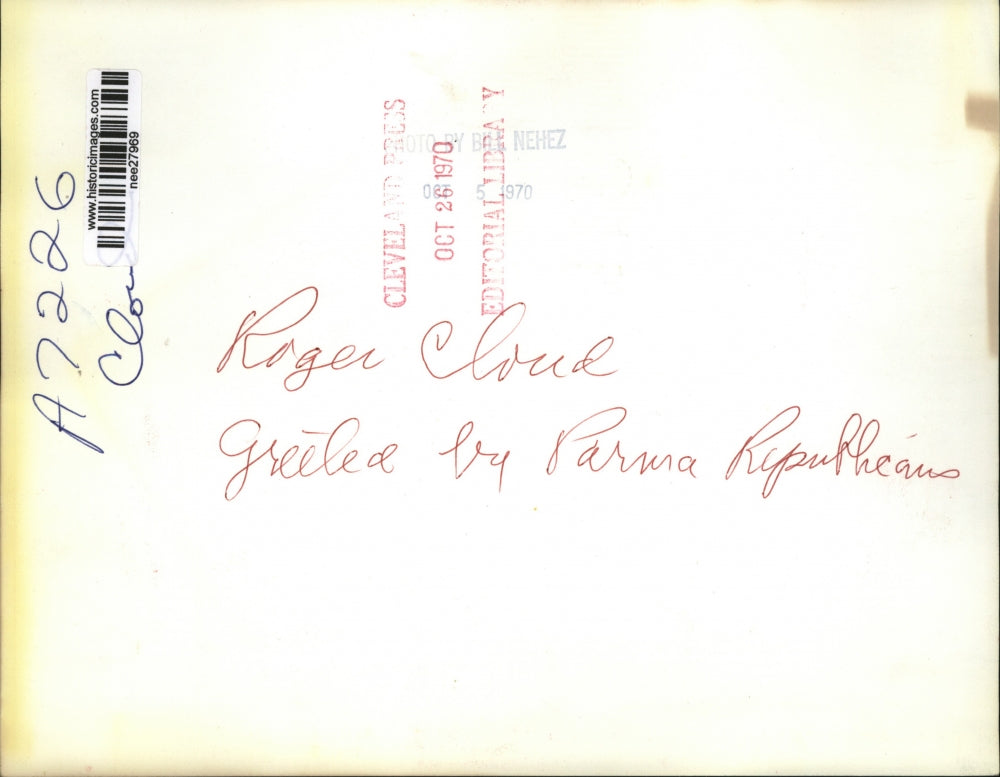 www.historicimages.com
nee27969
A7226
Clou
PHOTO BY BILL NEHEZ
OCT 5 1970
CLEVELAND PRESS
OCT 26 1970
EDITORIAL LIBRA Y
Roger Cloud
Greeted by Parma Republicans